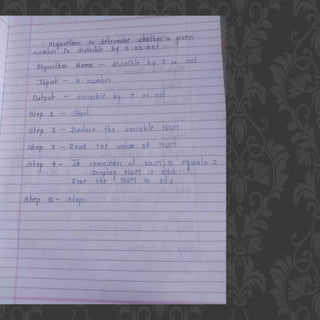 Algorithm to determine whether a given
number is divisible by 5 or not
Algorithm Name - divisible by 5 or not
Input - A number
Output - divisible by 5 or not
Step 1 - Start
Step 2 - Declare the variable NUM
Step 3 - Read the value of NUM
Step 4 - If remainder of NUM/5 equals 0
Display NUM is
Else the NUM is odd
Step 5 - Stop.